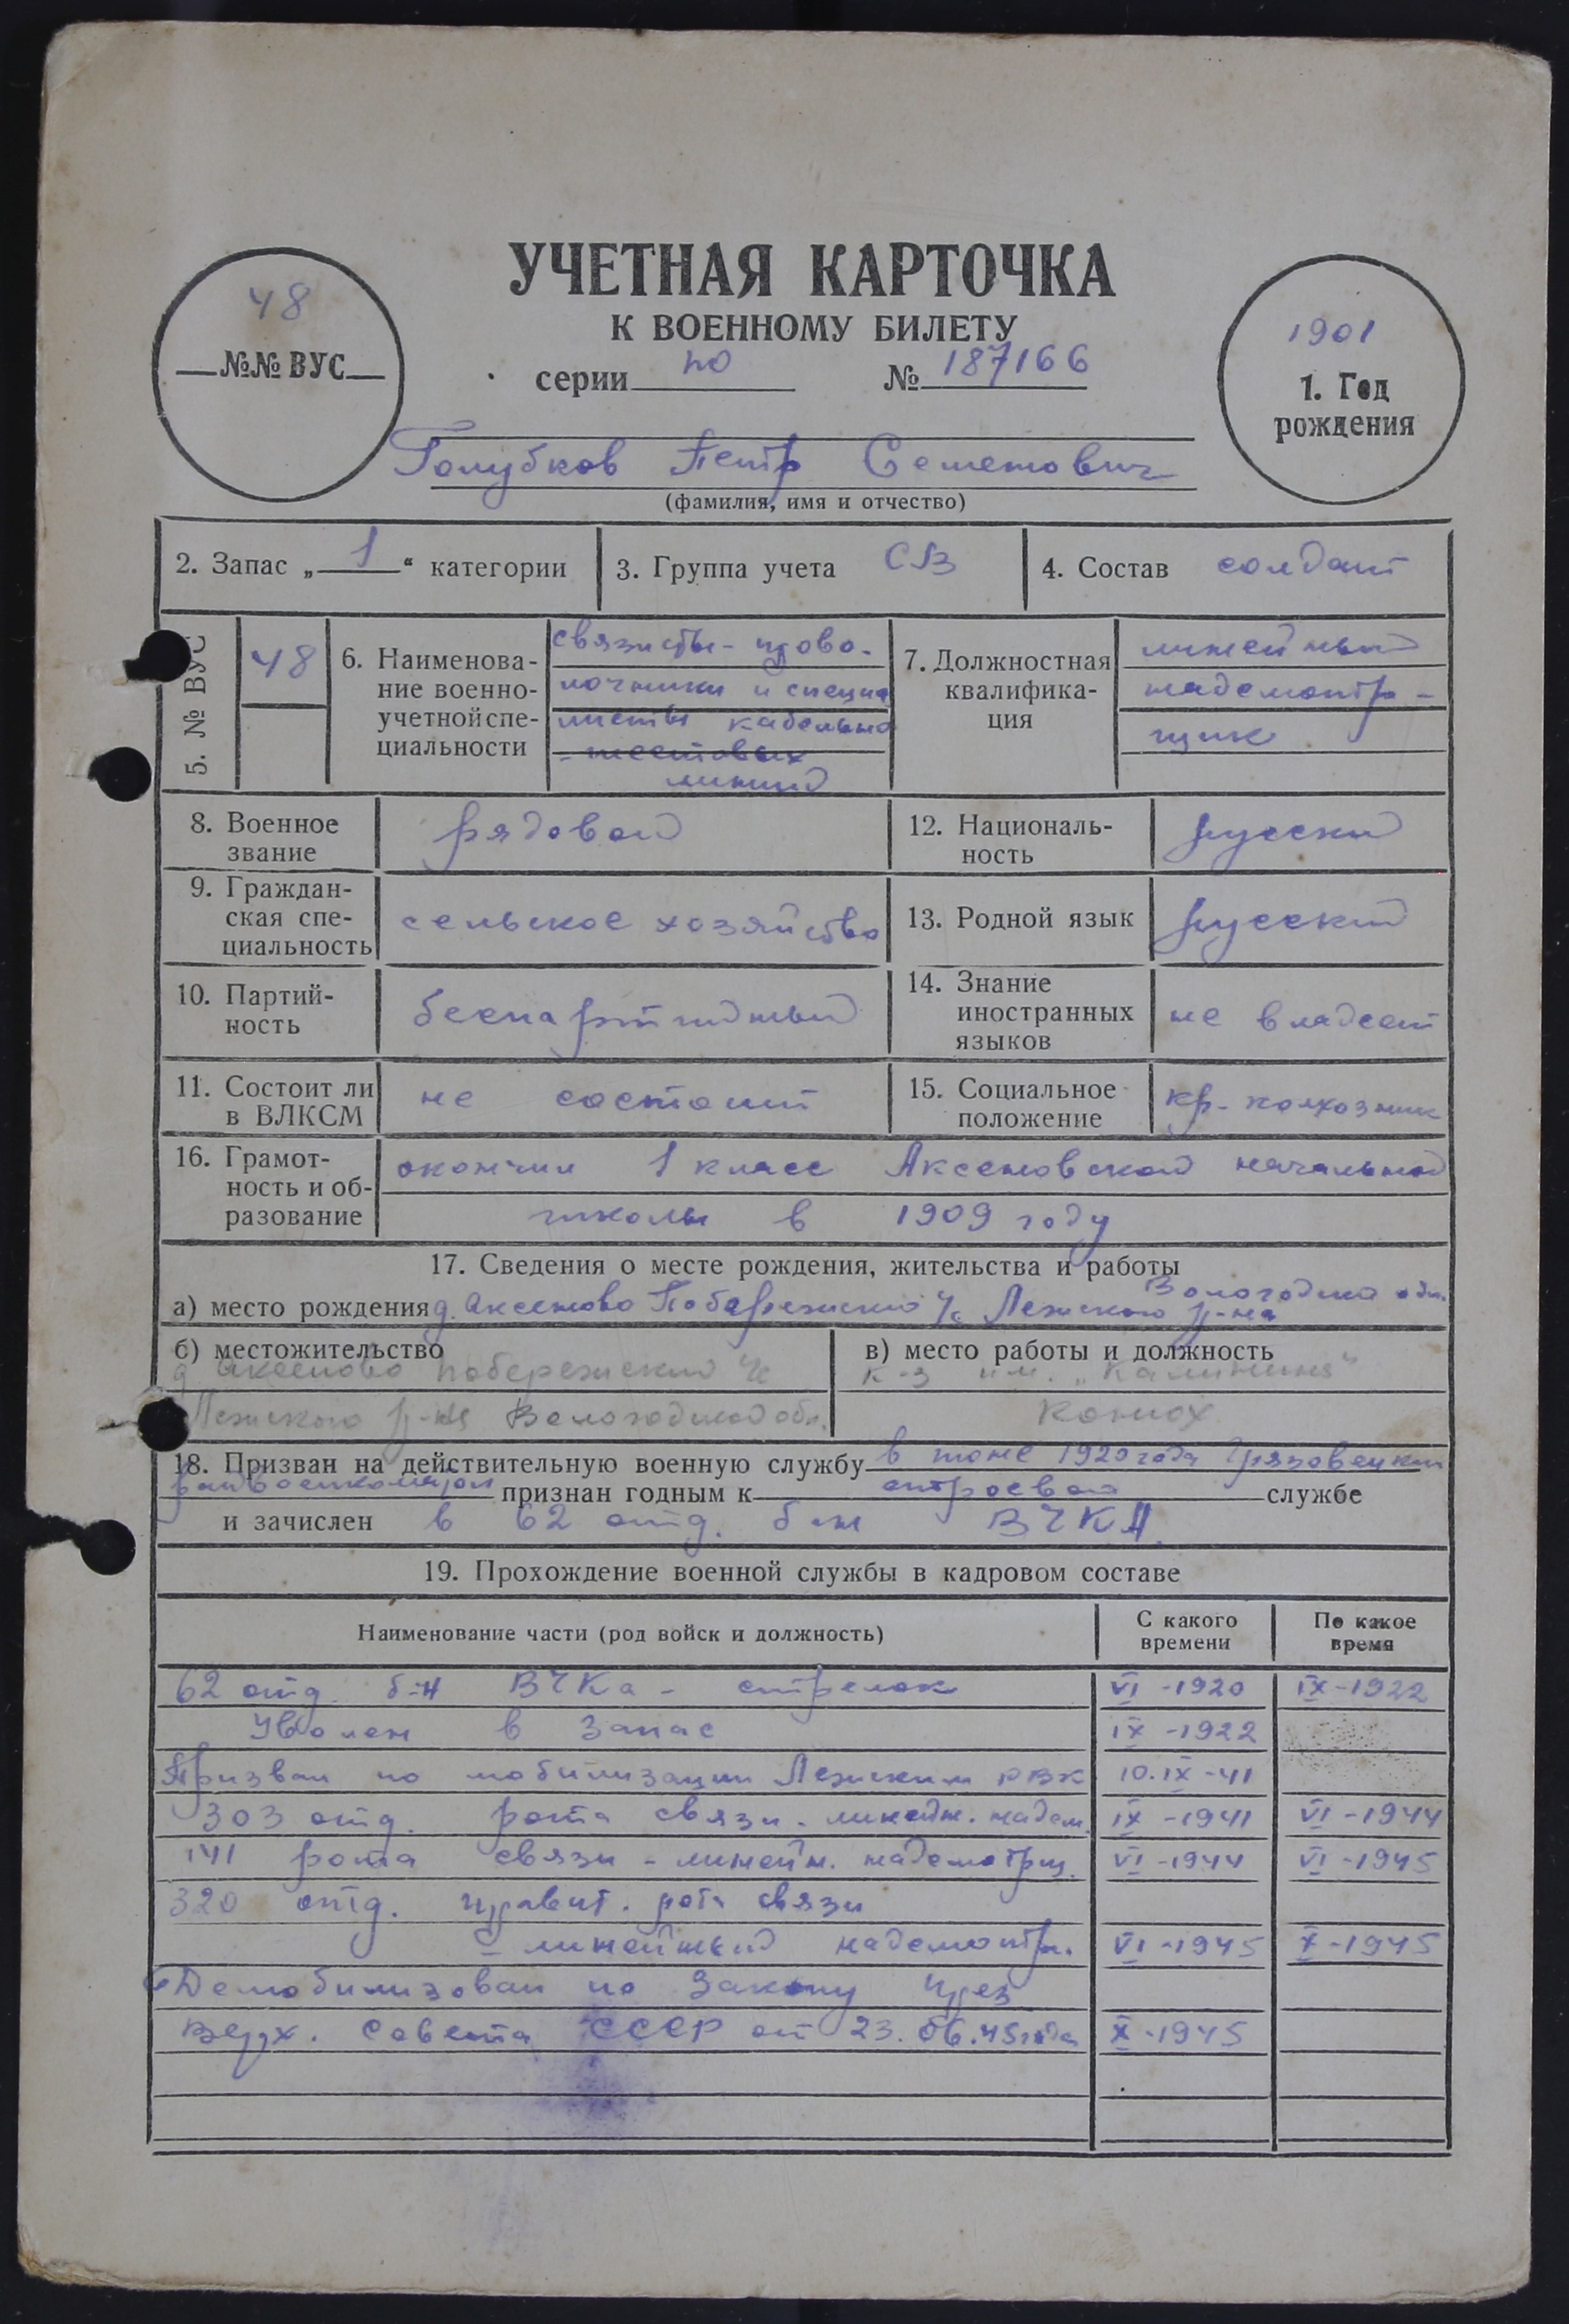 48
№№ ВУС
УЧЕТНАЯ КАРТОЧКА
К ВОЕННОМУ БИЛЕТУ
серии по № 187166
1901
1. Год
рождения
Голубков Петр Семенович
(фамилия, имя и отчество)
2. Запас „ 1 “ категории
3. Группа учета СВ
4. Состав солдат
5. № ВУС
48
6. Наименова-
ние военно-
учетной спе-
циальности
связисты - прово-
лочники и специа
листы кабельно
- шестовых
линий
7. Должностная
квалифика-
ция
линейный
надсмотр-
щик
8. Военное
звание
рядовой
12. Националь-
ность
русский
9. Граждан-
ская спе-
циальность
сельское хозяйство
13. Родной язык
русский
10. Партий-
ность
беспартийный
14. Знание
иностранных
языков
не владеет
11. Состоит ли
в ВЛКСМ
не состоит
15. Социальное
положение
кр-колхозник
16. Грамот-
ность и об-
разование
окончил 1 класс Аксеновской начальной
школы в 1909 году
17. Сведения о месте рождения, жительства и работы
Вологодска обл.
а) место рождения д. Аксеново Побережский ч/с Лежского р-на
б) местожительство
д Аксеново Побережский ч/с
Лежского р-на Вологодской обл.
в) место работы и должность
к-з им. „Калинина“
конюх
18. Призван на действительную военную службу в июне 1920 года Грязовецким
райвоенкоматом признан годным к строевой службе
и зачислен в 62 отд. б-н ВЧКА.
19. Прохождение военной службы в кадровом составе
Наименование части (род войск и должность)
С какого
времени
По какое
время
62 отд. б-н ВЧКа - стрелок VI -1920 IX-1922
Уволен в запас IX -1922
Призван по мобилизации Лежским РВК 10.IX-41
303 отд. рота связи - линейн. надсм. IX -1941 VI -1944
141 рота связи - линейн. надсмотрщ. VI -1944 VI -1945
320 отд. правит. рота связи
- линейный надсмотр. VI -1945 X -1945
Демобилизован по Закону през
верх. Совета СССР от 23.06.45 года X -1945